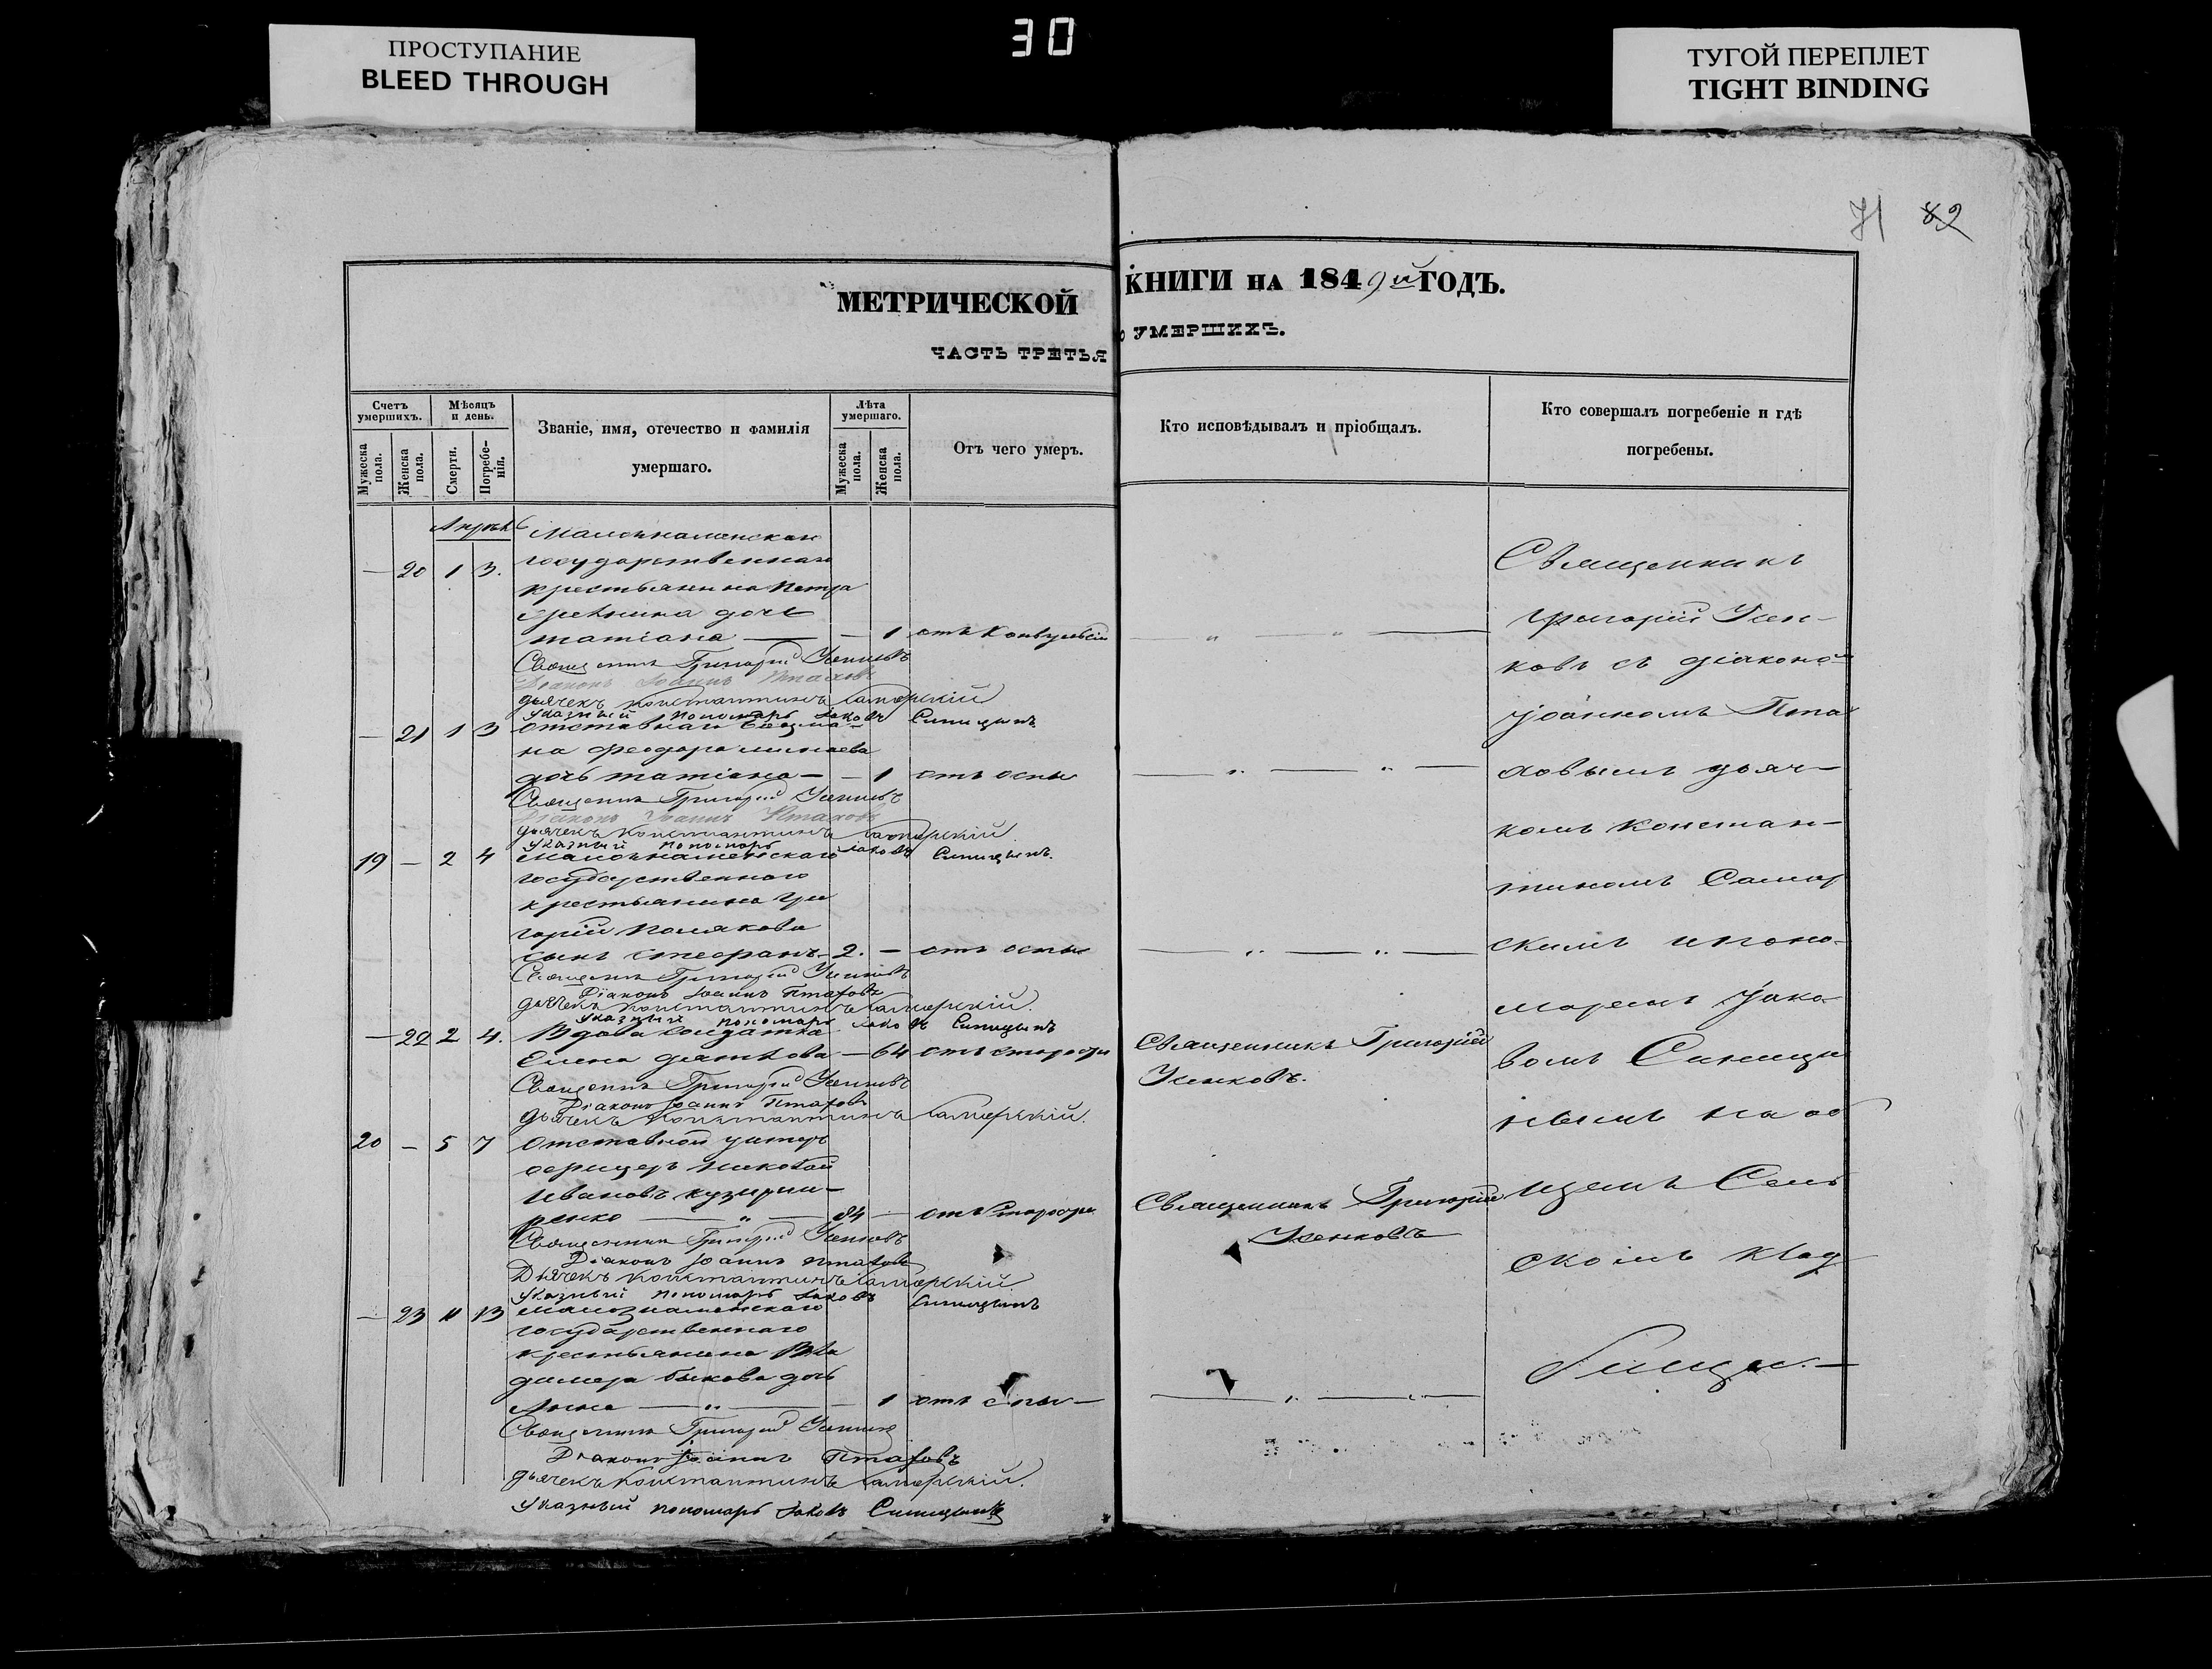 ПРОСТУПАНИЕ
BLEED THROUGH
30
ТУГОЙ ПЕРЕПЛЕТ
TIGHT BINDING
71 82
МЕТРИЧЕСКОЙ КНИГИ НА 1849й ГОДЪ.
ЧАСТЬ ТРЕТЬЯ о УМЕРШИХЪ.
Счетъ умершихъ.
Мужеска пола.
Женска пола.
Мѣсяцъ и день.
Смерти.
Погребенія.
Званіе, имя, отечество и фамилія
умершаго.
Лѣта умершаго.
Мужеска пола.
Женска пола.
Отъ чего умеръ.
Кто исповѣдывалъ и пріобщалъ.
Кто совершалъ погребеніе и гдѣ
погребены.
Апрѣль
— 20 1 3.
государственнаго
крестьянина Петра
дочь
татіана — — 1 отъ конвульсіи
Священникъ Григорій Усенковъ
Діаконъ Іоаннъ Птаховъ
дьячекъ Константинъ Самарскій
Указный пономарь Іаковъ Синицынъ
— 21 1 3 отставнаго
на Феодора минаева
дочь татіана — — 1 отъ оспы
Священникъ Григорій Усенковъ
Діаконъ Іоаннъ Птаховъ
дьячекъ Константинъ Самарскій
Указный пономарь Іаковъ Синицынъ.
19 — 2 4 малознаменскаго
государственнаго
крестьянина Гри
горія Полякова
сынъ стефанъ — 2. — отъ оспы
Священникъ Григорій Усенковъ
Діаконъ Іоаннъ Птаховъ
дьячекъ Константинъ Самарскій.
Указный пономарь Іаковъ Синицынъ
— 22 2 4. Вдова солдатка
Елена — 64 отъ старости
Священникъ Григорій
Усенковъ.
Священникъ Григорій Усенковъ
Діаконъ Іоаннъ Птаховъ
дьячекъ Константинъ Самарскій.
20 — 5 7 отставной унтеръ
офицеръ Николай
Ивановъ
— 84 — отъ старости
Священникъ Григорій
Усенковъ
Священникъ Григорій Усенковъ
Діаконъ Іоаннъ Птаховъ
Дьячекъ Константинъ Самарскій
Указный пономарь Іаковъ Синицынъ
— 23 11 13 малознаменскаго
государственнаго
крестьянина Вла
димера быкова дочь
Анна — — 1 отъ оспы —
Священникъ Григорій Усенковъ
Діаконъ Іоаннъ Птаховъ
дьячекъ Константинъ Самарскій.
Указный пономарь Іаковъ Синицынъ
Священникъ
Григорій Усен-
ковъ съ діакономъ
Іоанномъ Пта
ховымъ дьяч-
комъ Констан-
тиномъ Самар
скимъ и поно-
маремъ Іако-
вомъ Синицы
нымъ на об
щемъ Сель
скомъ клад
бищи.—